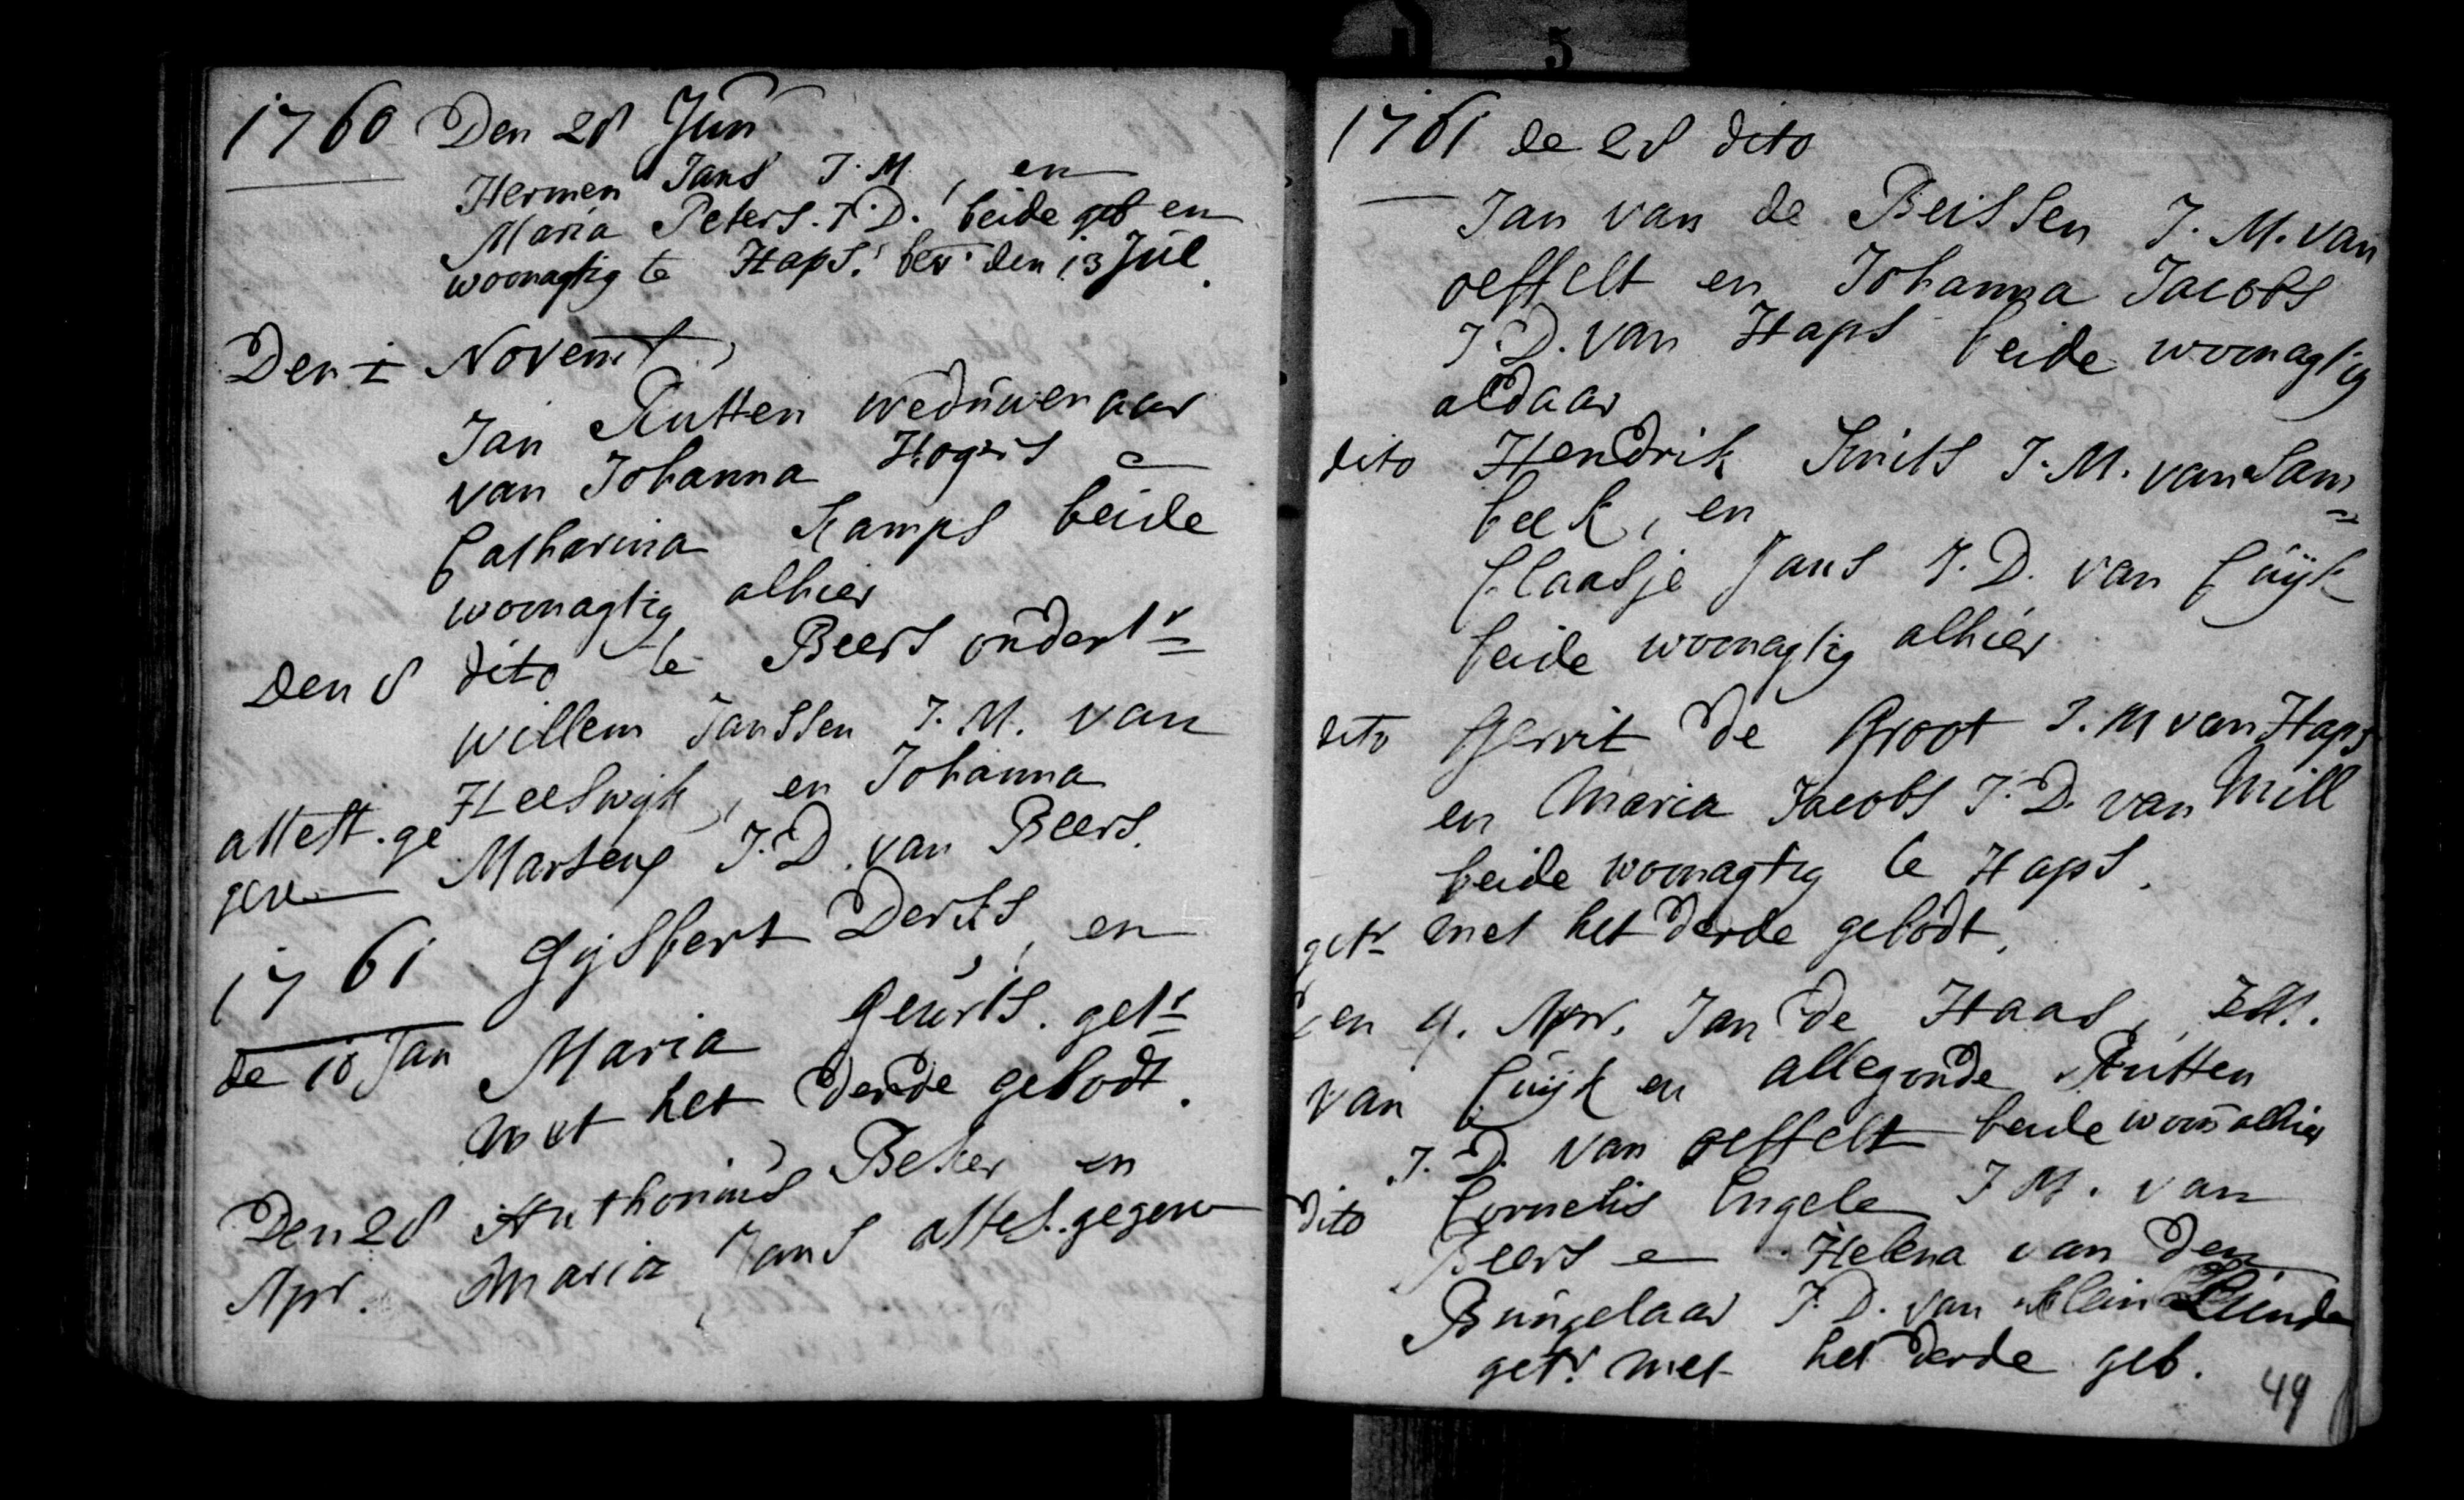 5
1760 Den 28 Jun
Hermen Jans J. M, en
Maria Peters. J. D. beide geb en
woonagtig te Haps. bev. den 13 Jul.
Den 1 Novemb
Jan Rutten weduwenaar
van Johanna Hogers e
Catharina Kamps beide
woonagtig alhier
Den 8 dito te Beers ondertr
Willem Janssen J. M. van
Heeswyk, en Johanna
attest. ge Martens J. D. van Beers.
geve
1761 Gysbert Derks, en
Maria Geurts. getr
de 18 Jan
met het derde gebodt.
Den 28 Anthonius Beker en
Apr. Maria Jans attes. gegeve
1761 de 28 dito
Jan van de Beissen J. M. van
oeffelt en Johanna Jacobs
J. D. van Haps beide woonagtig
aldaar
dito Hendrik Smits J. M. van Sam=
beek, en
Claasje Jans J. D. van Cuyk
beide woonagtig alhier
dito Gerrit de Groot J. M van Haps
en Maria Jacobs J. D. van Mill
beide woonagtig te Haps.
getr met het derde gebodt.
den 4. Apr. Jan de Haas, J.M.
van Cuyk en allegonde Rutten
J. D. van oeffelt beide woon alhier
dito Cornelis Engele J M. van
Beers e Helena van den
Bungelaar J. D. van Klein
getr. met het derde geb.
49